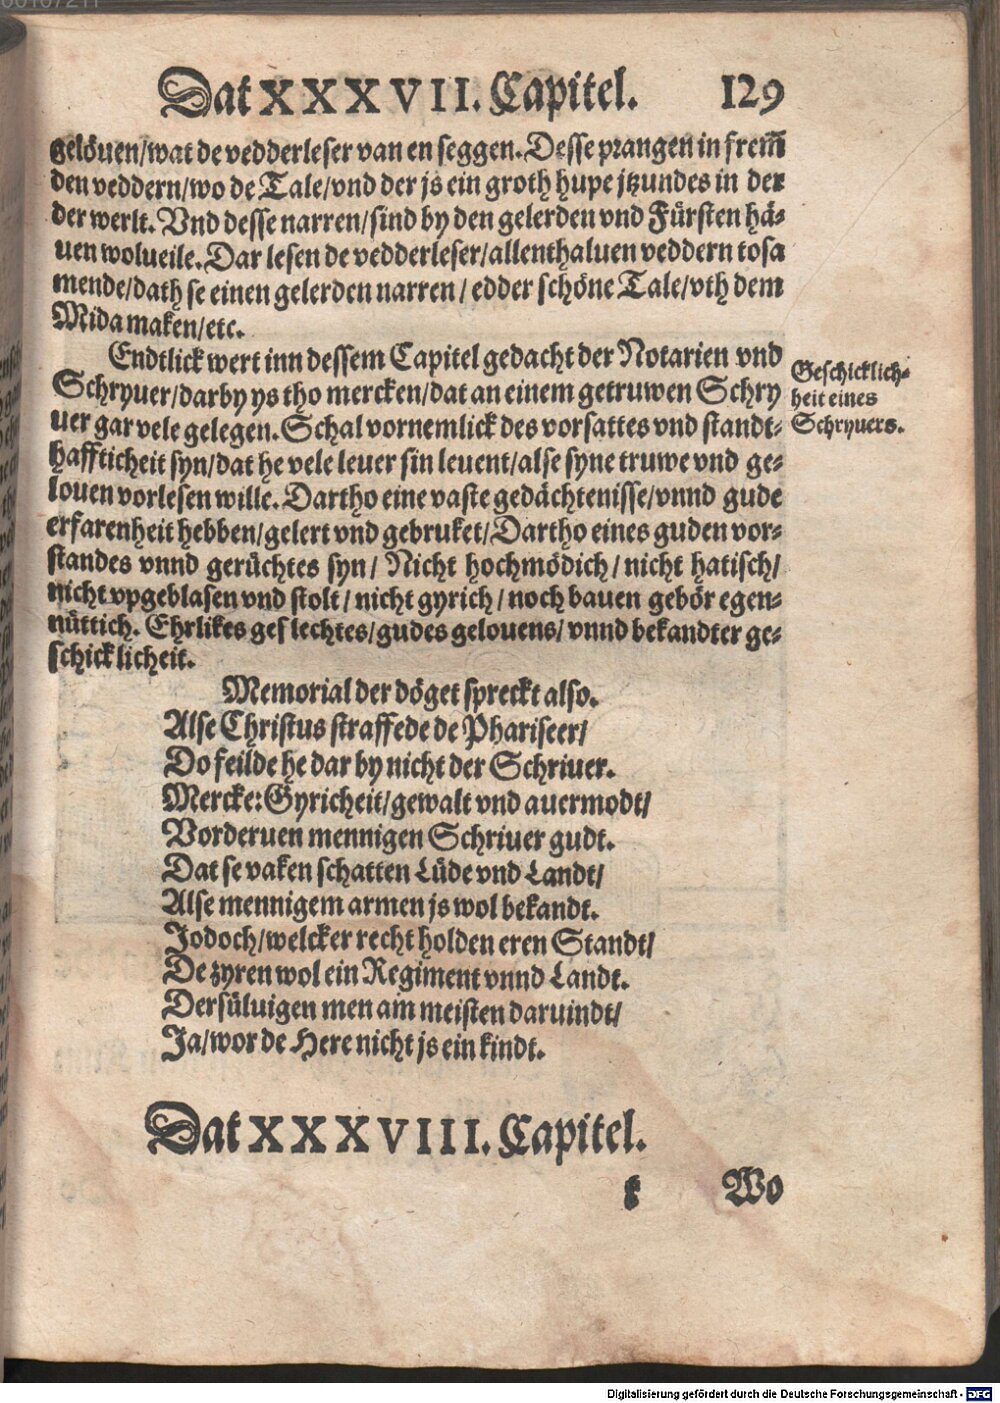 Dat XXXVII. Capitel. 129
gelöuen/wat de vedderleser van en seggen. Desse prangen in frem̃
den veddern/wo de Tale/vnd der js ein groth hupe jtzundes in der
der werlt. Vnd desse narren/sind by den gelerden vnd Fürsten hä-
uen wolueile. Dar lesen de vedderleser/allenthaluen veddern tosa
mende/dath se einen gelerden narren/edder schöne Tale/vth dem
Mida maken/etc.
Endtlick wert inn dessem Capitel gedacht der Notarien vnd
Schryuer/darby ys tho mercken/dat an einem getruwen Schry
uer gar vele gelegen. Schal vornemlick des vorsattes vnd standt-
hafftich­eit syn/dat he vele leuer sin leuent/alse syne truwe vnd ge-
louen vorlesen wille. Dartho eine vaste gedächtenisse/vnnd gude
erfarenheit hebben/gelert vnd gebruket/Dartho eines guden vor-
standes vnnd gerüchtes syn/Nicht hochmödich/nicht hatisch/
nicht vpgeblasen vnd stolt/nicht gyrich/noch bauen gebör egen-
nüttich. Ehrlikes geslechtes/gudes gelouens/vnnd bekandter ge-
schicklicheit.
Geschicklich-
heit eines
Schryuers.
Memorial der döget spreckt also.
Alse Christus straffede de Phariseer/
Do feilde he dar by nicht der Schriuer.
Mercke: Gyricheit/gewalt vnd auermodt/
Vorderuen mennigen Schriuer gudt.
Dat se vaken schatten Lüde vnd Landt/
Alse mennigem armen js wol bekandt.
Jodoch/welcker recht holden eren Standt/
De zyren wol ein Regiment vnnd Landt.
Dersüluigen men am meisten daruindt/
Ja/wor de Here nicht js ein kindt.
Dat XXXVIII. Capitel.
k Wo
Digitalisierung gefördert durch die Deutsche Forschungsgemeinschaft - DFG